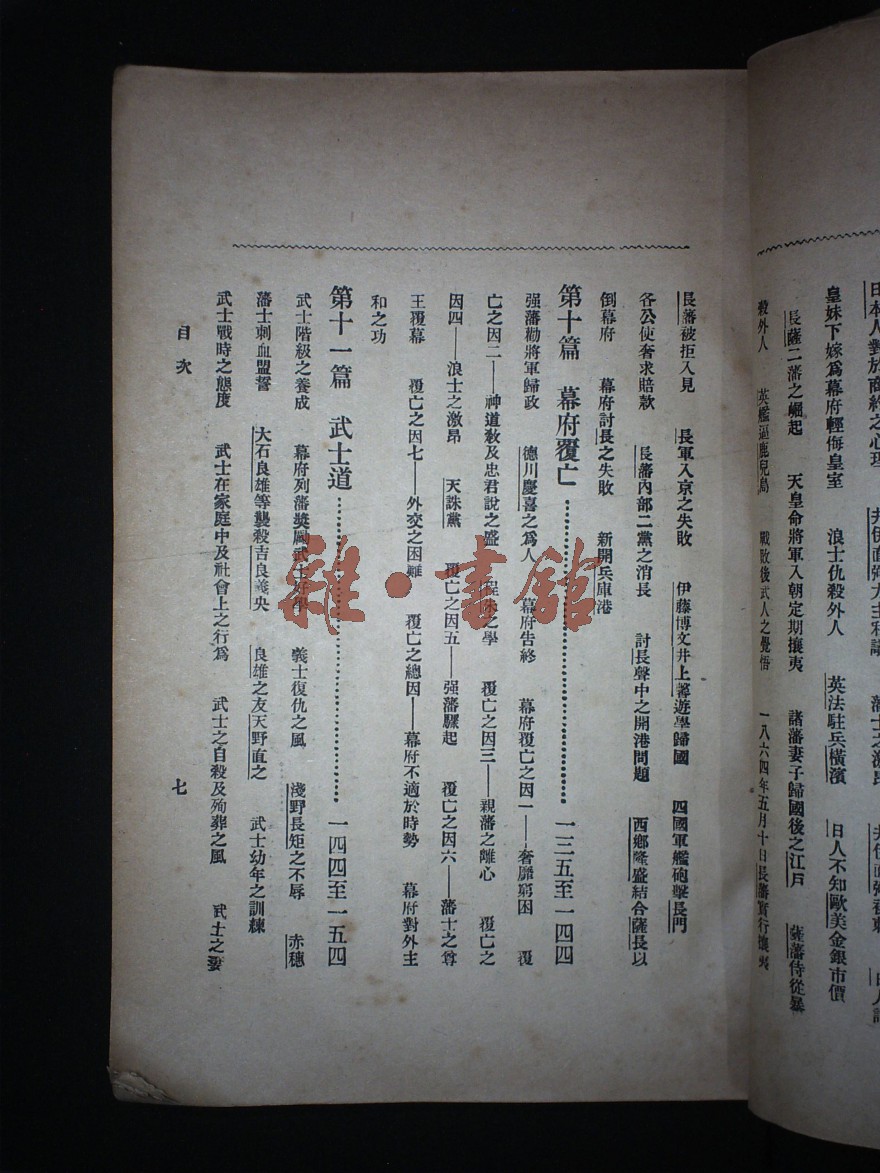 皇妹下嫁爲幕府輕侮皇室　浪士仇殺外人　英法駐兵橫濱　日人不知歐美金銀市價
長薩二藩之崛起　天皇命將軍入朝定期攘夷　諸藩妻子歸國後之江戶　薩藩侍從暴
殺外人　英艦逼鹿兒島　戰敗後武人之覺悟　一八六四年五月十日長藩實行攘夷
長藩被拒入見　長軍入京之失敗　伊藤博文井上馨遊學歸國　四國軍艦砲擊長門
各公使奢求賠款　長藩內部二黨之消長　討長聲中之開港問題　西鄉隆盛結合薩長以
倒幕府　幕府討長之失敗　新開兵庫港
第十篇　幕府覆亡⋯⋯⋯⋯⋯⋯⋯⋯一三五至一四四
强藩勸將軍歸政　德川慶喜之爲人　幕府告終　幕府覆亡之因一——奢靡窮困　覆
亡之因二——神道敎及忠君說之盛　程朱之學　覆亡之因三——親藩之離心　覆亡之
因四——浪士之激昂　天誅黨　覆亡之因五——强藩驟起　覆亡之因六——藩士之尊
王覆幕　覆亡之因七——外交之困難　覆亡之總因——幕府不適於時勢　幕府對外主
和之功
第十一篇　武士道⋯⋯⋯⋯⋯⋯⋯⋯一四四至一五四
武士階級之養成　幕府列藩獎勵武士好學　義士復仇之風　淺野長矩之不辱　赤穗
藩士刺血盟誓　大石良雄等襲殺吉良義央　良雄之友天野直之　武士幼年之訓練
武士戰時之態度　武士在家庭中及社會上之行爲　武士之自殺及殉葬之風　武士之妻
目次
七
雜·書館